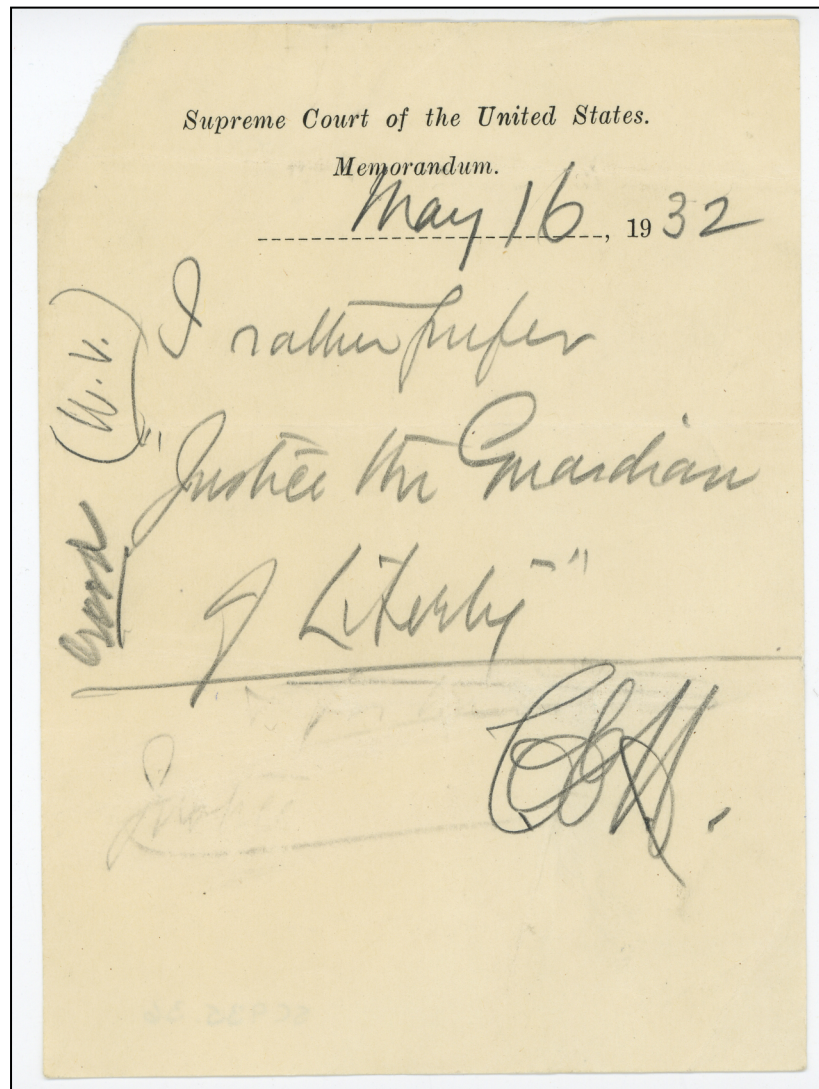 Supreme Court of the United States.
Memorandum.
May 16, 1932
I rather prefer
"Justice the Guardian
of Liberty"
C E H.
good (W. V.)
Justice